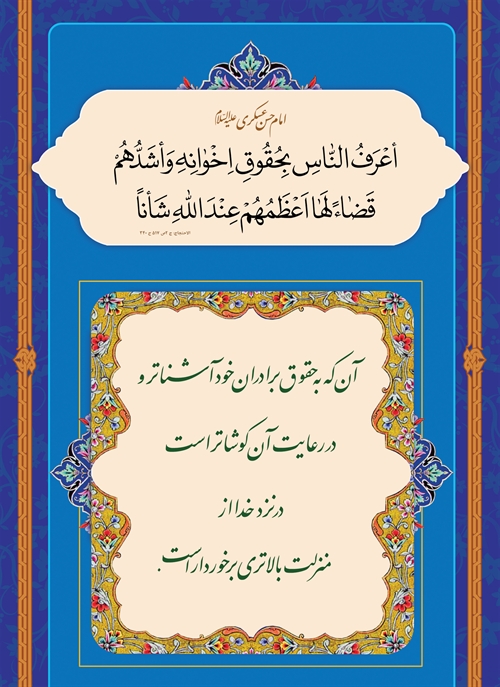 امام حسن عسکری علیه‌السلام
أعْرَفُ النّاسِ بِحُقُوقِ اِخْوٰانِهِ وَأشَدُّهُمْ
قَضٰاءً لَهٰا اَعْظَمُهُمْ عِنْدَ اللهِ شَأناً
آن که به حقوق برادران خود آشناتر و
در رعایت آن کوشاتر است
در نزد خدا از
منزلت بالاتری برخوردار است.